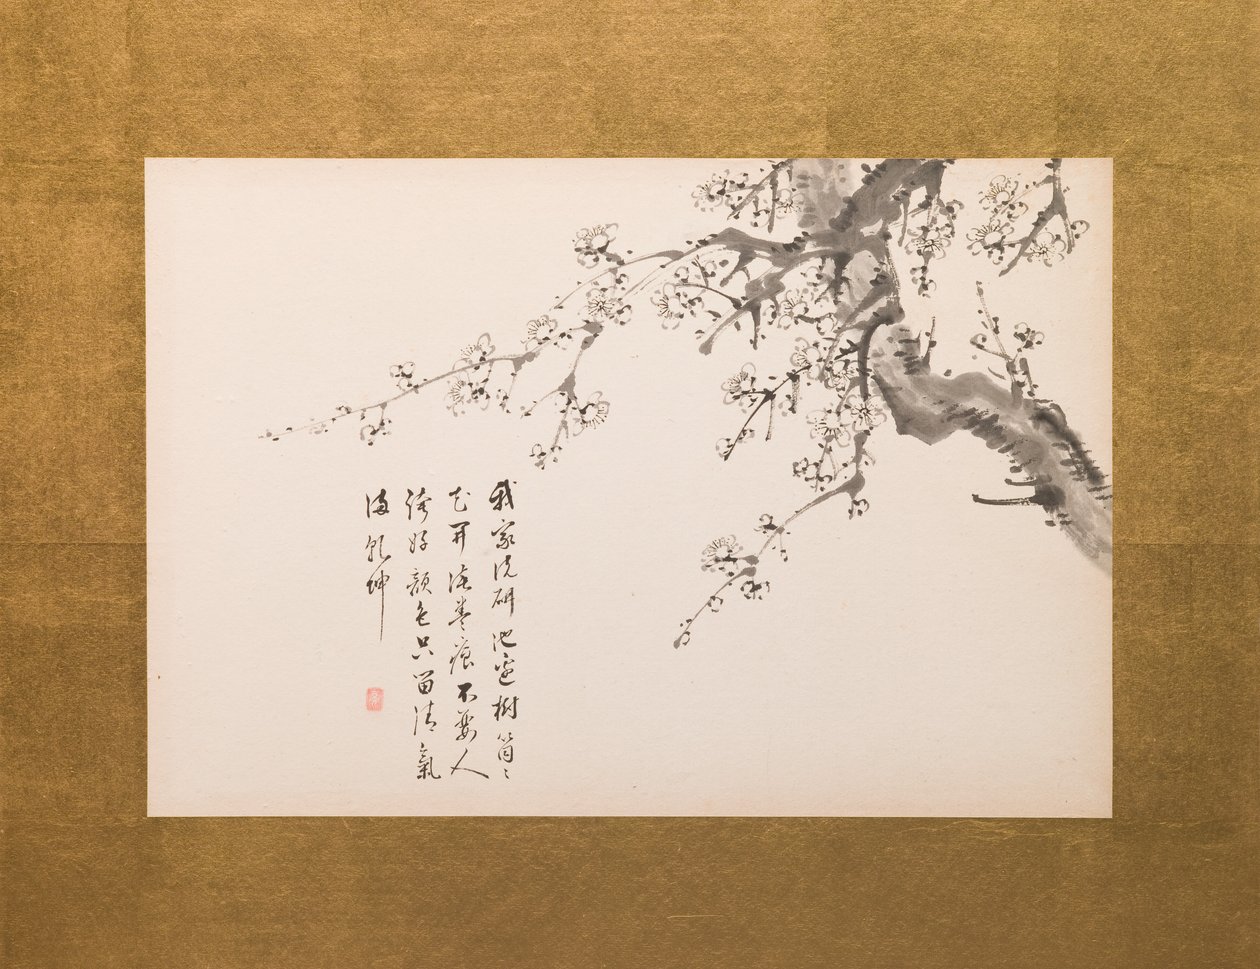 我家洗研池邊樹箇〻
花開淡墨痕不要人
誇好顏色只留清氣
滿乾坤